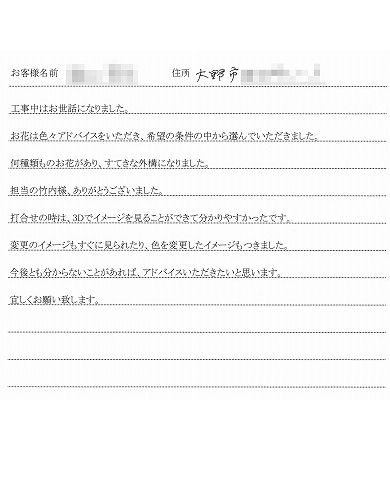 お客様名前 住所 大野市
工事中はお世話になりました。
お花は色々アドバイスをいただき、希望の条件の中から選んでいただきました。
何種類ものお花があり、すてきな外構になりました。
担当の竹内様、ありがとうございました。
打合せの時は、3Dでイメージを見ることができて分かりやすかったです。
変更のイメージもすぐに見られたり、色を変更したイメージもつきました。
今後とも分からないことがあれば、アドバイスいただきたいと思います。
宜しくお願い致します。